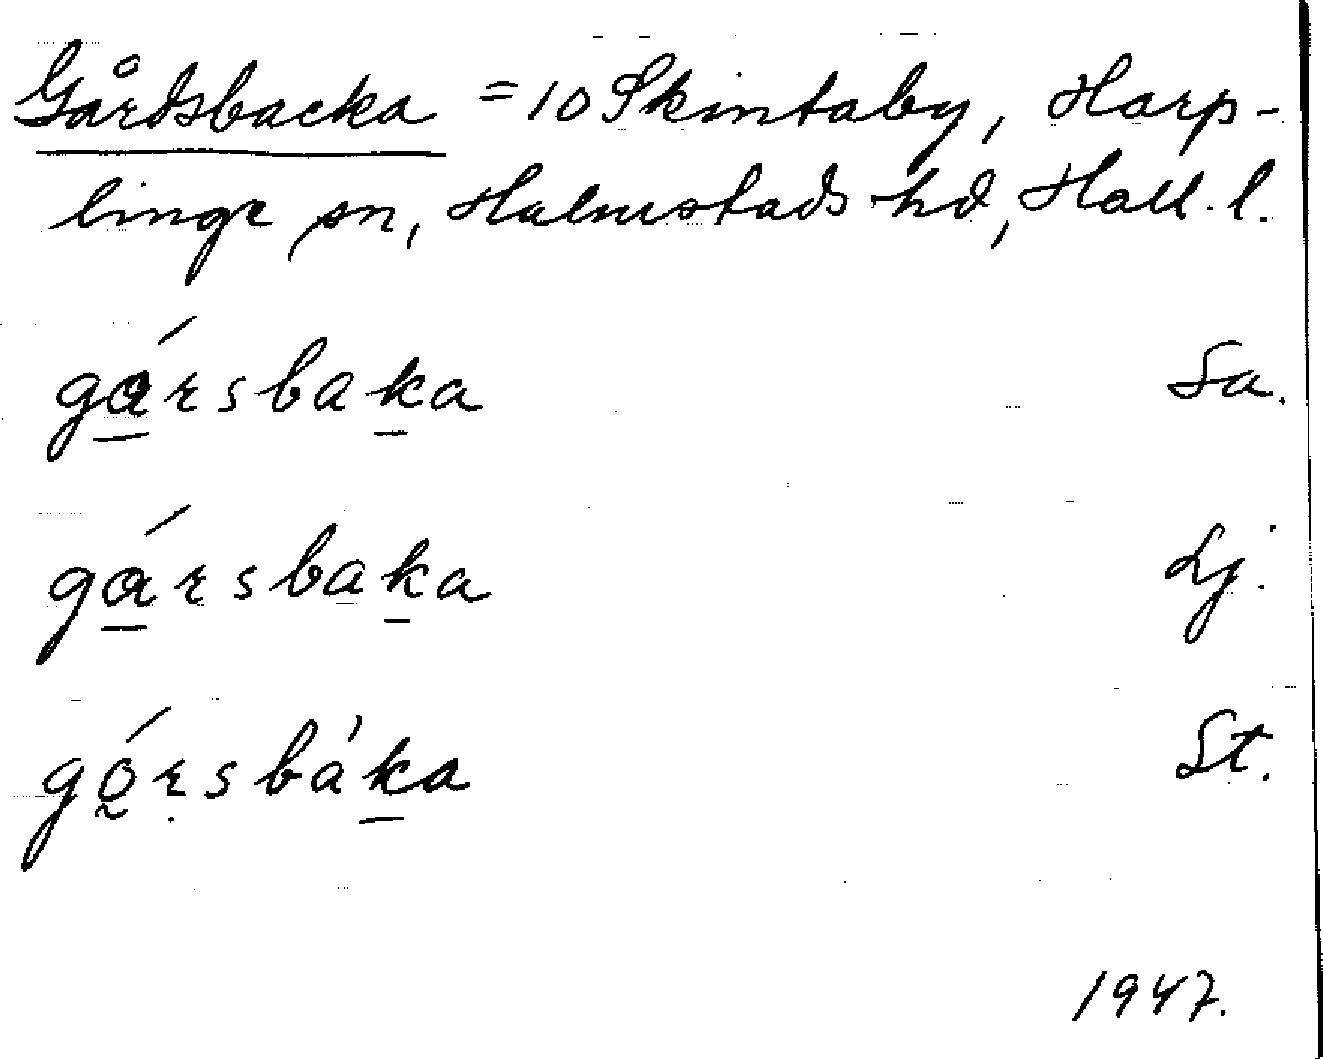 Gårdsbacka = 10 Skintaby, Harp-
linge sn, Halmstads hd, Hall. l.
gá̲rsbak̲a Sa.
gá̲rsbak̲a Lj.
gó̰ṛsbàk̲a St.
1947.